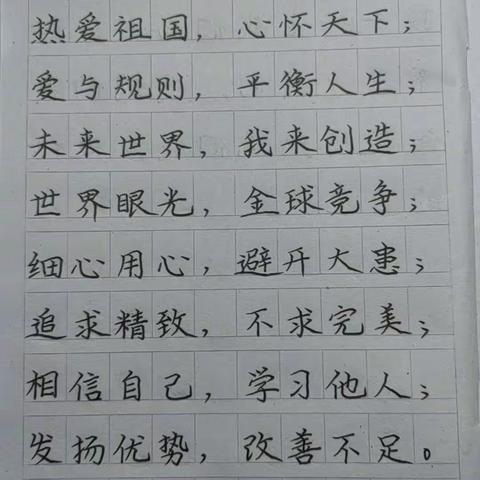 热爱祖国，心怀天下；
爱与规则，平衡人生；
未来世界，我来创造；
世界眼光，金球竞争；
细心用心，避开大患；
追求精致，不求完美；
相信自己，学习他人；
发扬优势，改善不足。